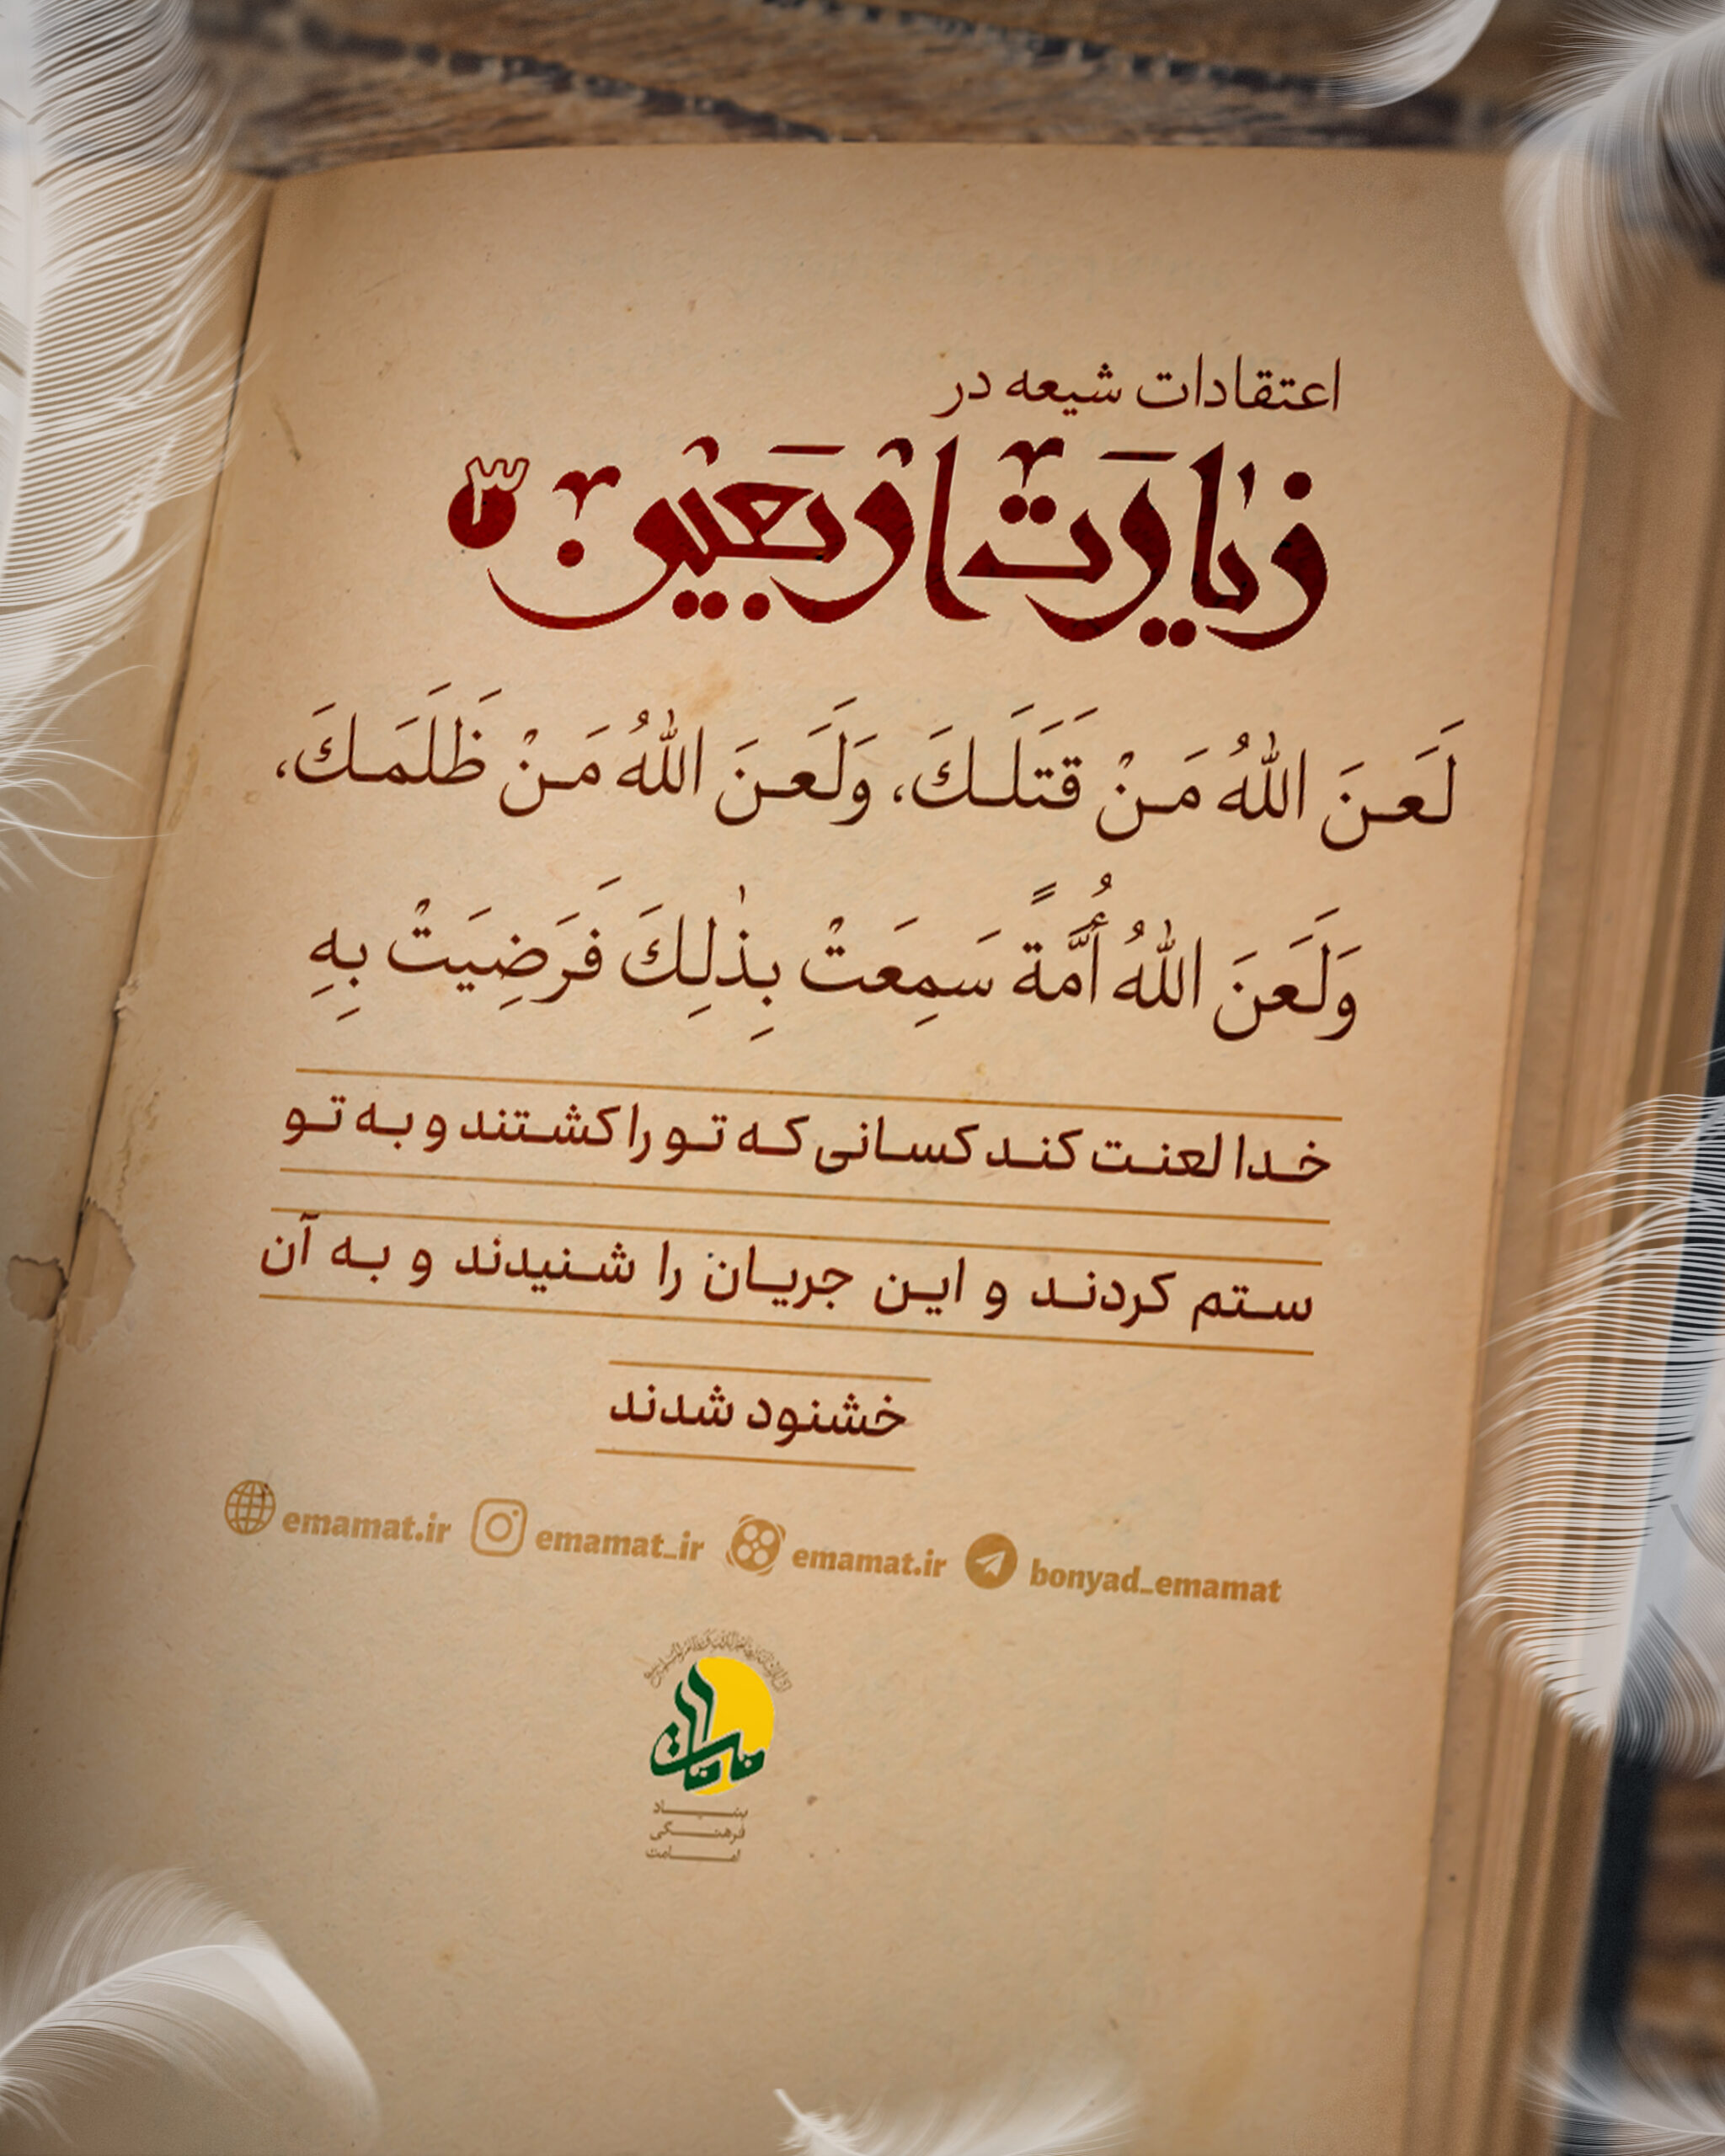 اعتقادات شیعه در
زیارت اربعین ۳
لَعَنَ اللهُ مَنْ قَتَلَكَ، وَلَعَنَ اللهُ مَنْ ظَلَمَكَ،
وَلَعَنَ اللهُ أُمَّةً سَمِعَتْ بِذٰلِكَ فَرَضِيَتْ بِهِ
خدا لعنت کند کسانی که تو را کشتند و به تو
ستم کردند و این جریان را شنیدند و به آن
خشنود شدند
emamat.ir emamat_ir emamat.ir bonyad_emamat
امامت
بنیاد
فرهنگی
امامت